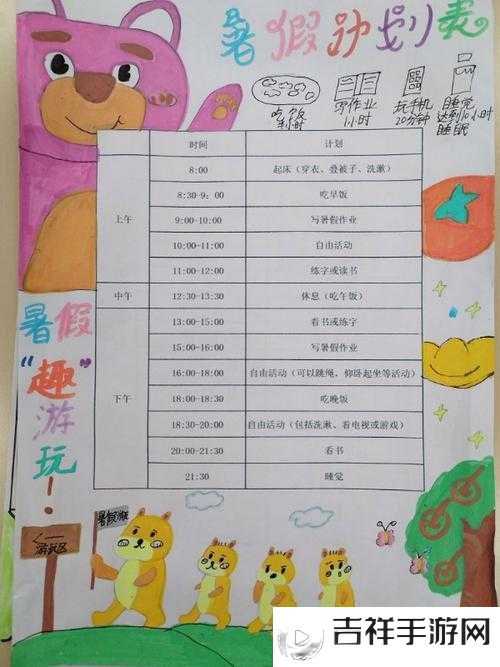 暑假计划表
吃饭
半小时
写作业
1小时
玩手机
20分钟
睡觉
达到10小时
睡眠
时间 计划
上午
8:00 起床（穿衣、叠被子、洗漱）
8:30-9：00 吃早饭
9:00-10:00 写暑假作业
10:00-11:00 自由活动
11:00-12:00 练字或读书
中午
12:30-13:30 休息（吃午饭）
下午
13:00-15:00 看书或练字
15:00-16:00 写暑假作业
16:00-18:00 自由活动（可以跳绳，仰卧起坐等活动）
18:00-18:30 吃晚饭
18:30-20:00 自由活动（包括洗漱、看电视或游戏）
20:00-21:30 看书
21:30 睡觉
暑假
“趣”
游
玩！
游玩区
吉祥手游网